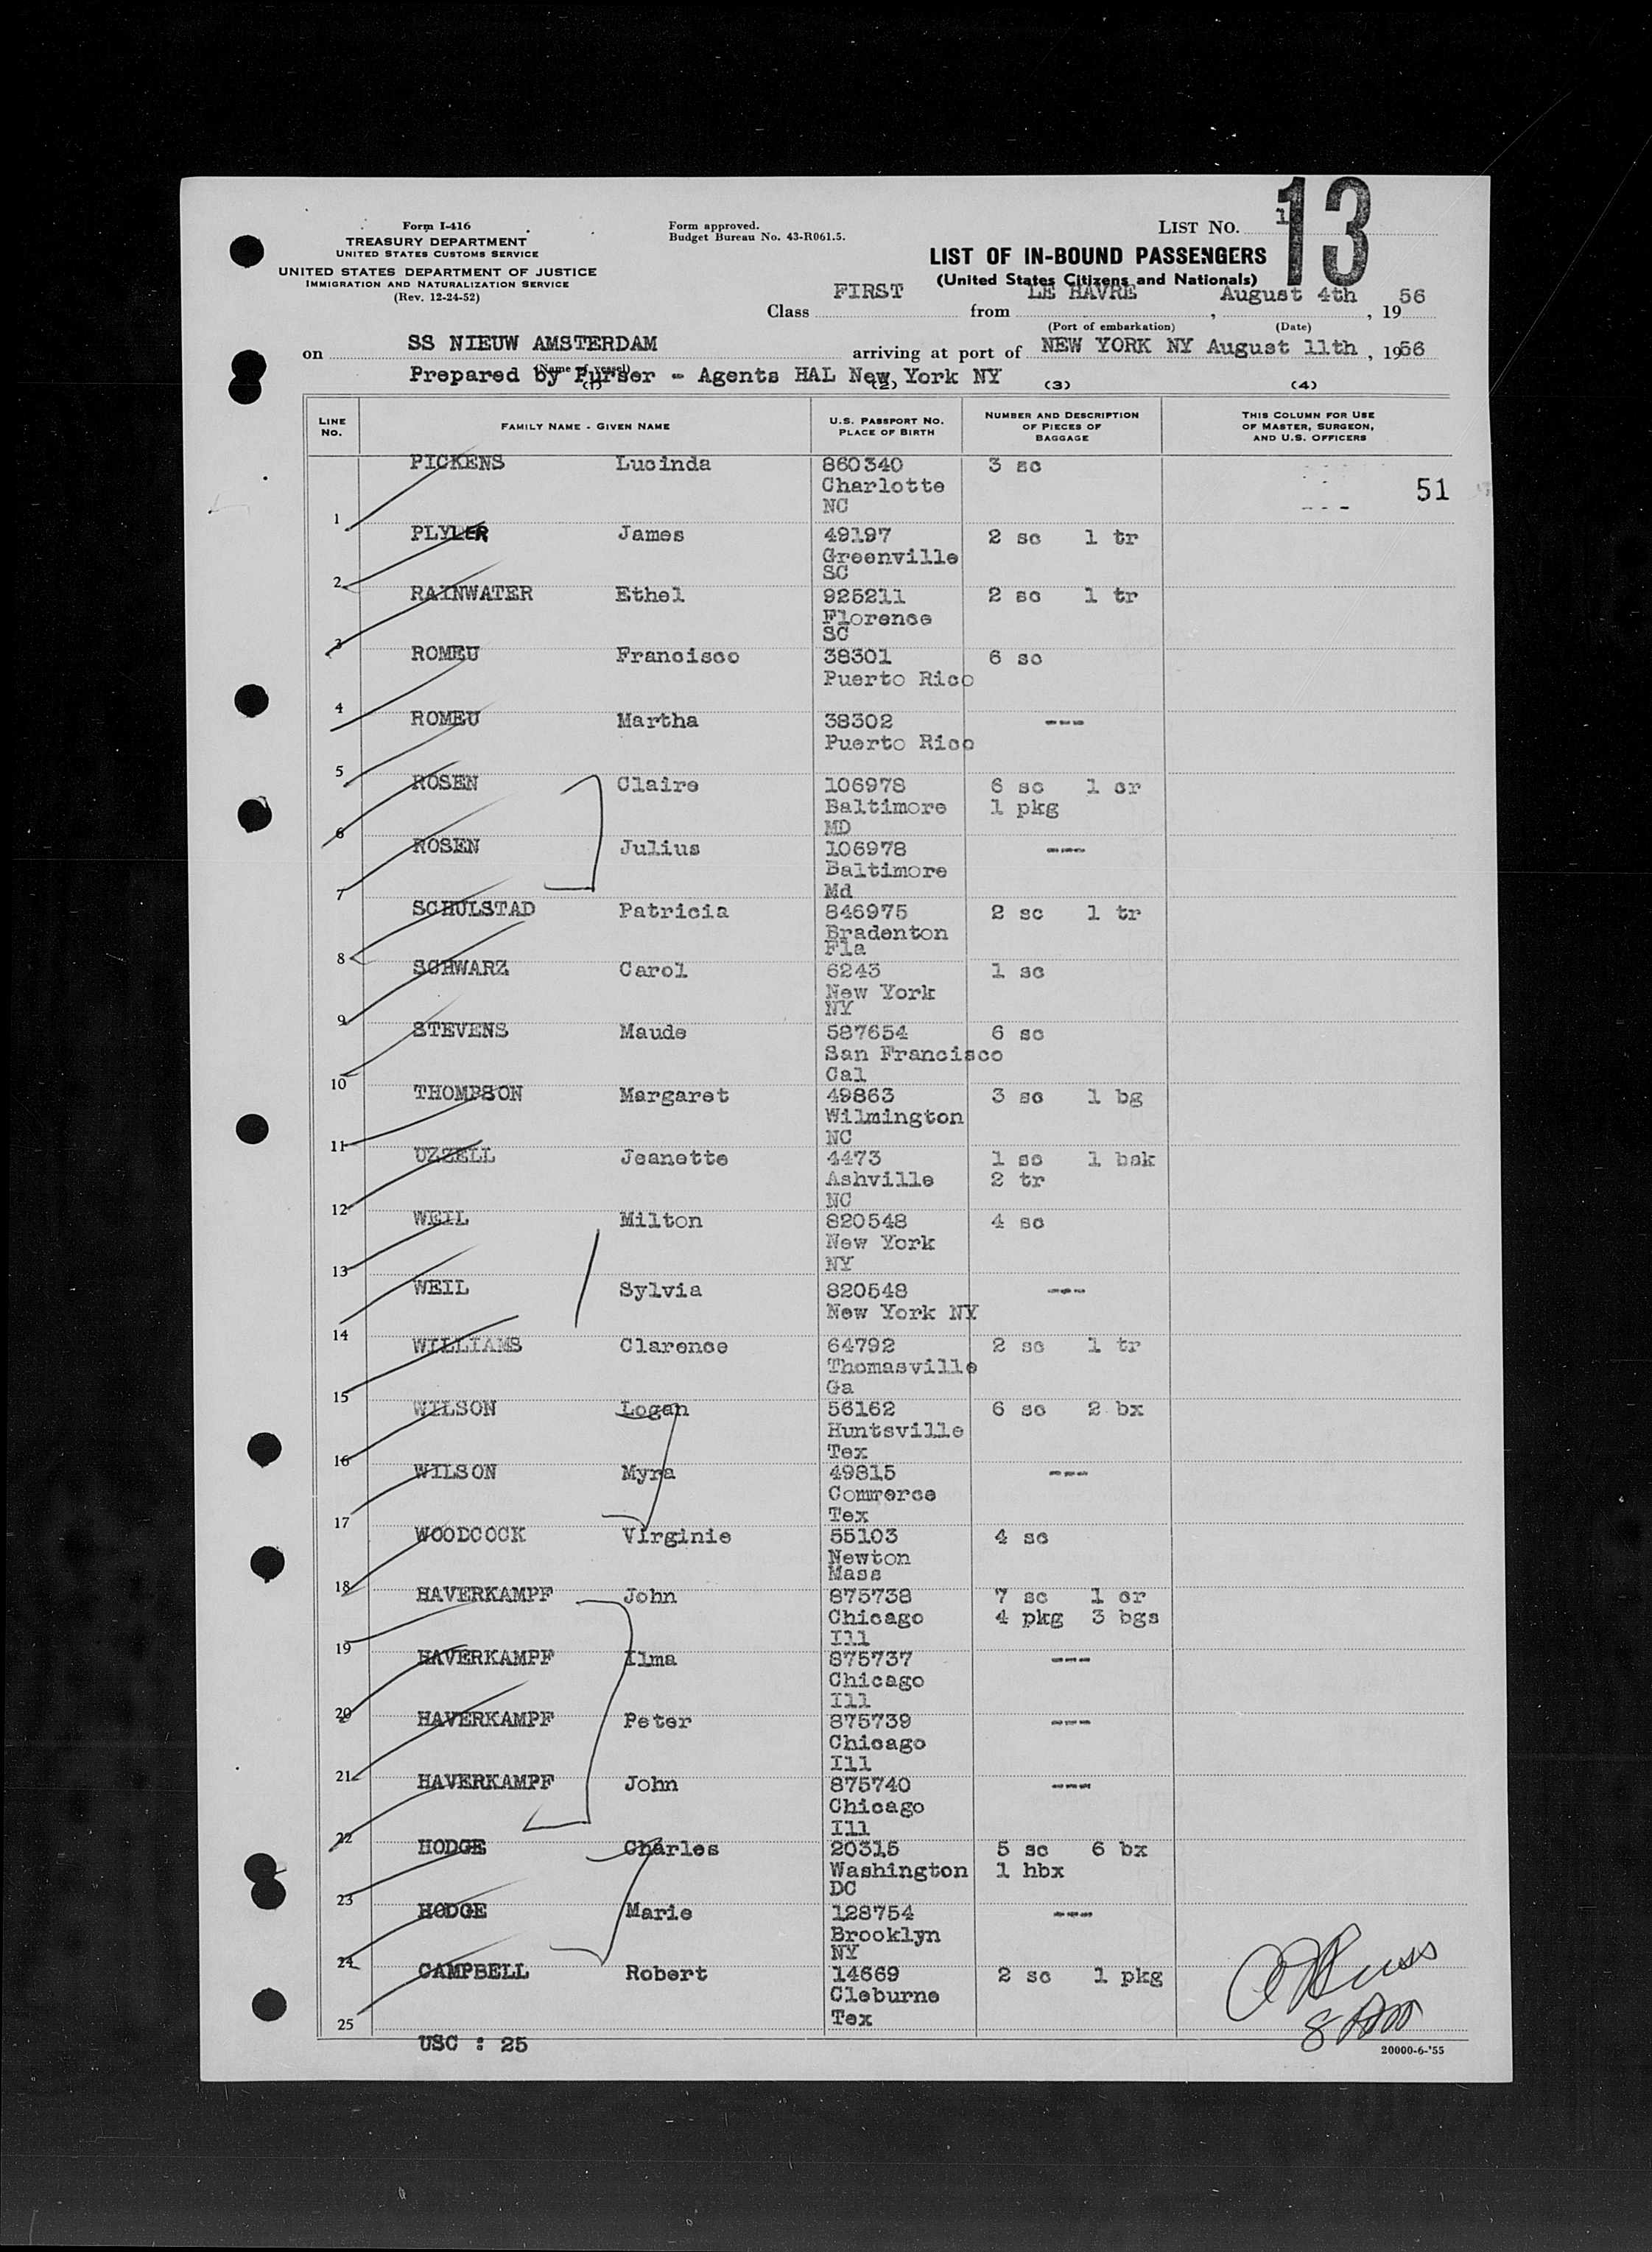 Form I-416
TREASURY DEPARTMENT
UNITED STATES CUSTOMS SERVICE
UNITED STATES DEPARTMENT OF JUSTICE
IMMIGRATION AND NATURALIZATION SERVICE
(Rev. 12-24-52)
Form approved.
Budget Bureau No. 43-R061.5.
LIST NO. 1
13
LIST OF IN-BOUND PASSENGERS
(United States Citizens and Nationals)
Class FIRST from LE HAVRE, August 4th, 1956
(Port of embarkation) (Date)
on SS NIEUW AMSTERDAM arriving at port of NEW YORK NY August 11th, 1956
(Name of vessel)
Prepared by Purser - Agents HAL New York NY
(1) (2) (3) (4)
LINE NO. FAMILY NAME - GIVEN NAME U.S. PASSPORT NO. PLACE OF BIRTH NUMBER AND DESCRIPTION OF PIECES OF BAGGAGE THIS COLUMN FOR USE OF MASTER, SURGEON, AND U.S. OFFICERS
51
1 PICKENS Lucinda 860340 3 sc
Charlotte
NC
2 PLYLER James 49197 2 sc 1 tr
Greenville
SC
3 RAINWATER Ethel 925211 2 sc 1 tr
Florence
SC
4 ROMEU Francisco 38301 6 sc
Puerto Rico
5 ROMEU Martha 38302 ---
Puerto Rico
6 ROSEN Claire 106978 6 sc 1 cr
Baltimore 1 pkg
MD
7 ROSEN Julius 106978 ---
Baltimore
Md
8 SCHULSTAD Patricia 846975 2 sc 1 tr
Bradenton
Fla
9 SCHWARZ Carol 6243 1 sc
New York
NY
10 STEVENS Maude 587654 6 sc
San Francisco
Cal
11 THOMPSON Margaret 49863 3 sc 1 bg
Wilmington
NC
12 UZZELL Jeanette 4473 1 sc 1 bsk
Ashville 2 tr
NC
13 WEIL Milton 820548 4 sc
New York
NY
14 WEIL Sylvia 820548 ---
New York NY
15 WILLIAMS Clarence 64792 2 sc 1 tr
Thomasville
Ga
16 WILSON Logan 56162 6 sc 2 bx
Huntsville
Tex
17 WILSON Myra 49815 ---
Commerce
Tex
18 WOODCOCK Virginie 55103 4 sc
Newton
Mass
19 HAVERKAMPF John 875738 7 sc 1 cr
Chicago 4 pkg 3 bgs
Ill
20 HAVERKAMPF Ilma 875737 ---
Chicago
Ill
21 HAVERKAMPF Peter 875739 ---
Chicago
Ill
22 HAVERKAMPF John 875740 ---
Chicago
Ill
23 HODGE Charles 20315 5 sc 6 bx
Washington 1 hbx
DC
24 HODGE Marie 128754 ---
Brooklyn
NY
25 CAMPBELL Robert 14669 2 sc 1 pkg
Cleburne
Tex
USC : 25
20000-6-'55